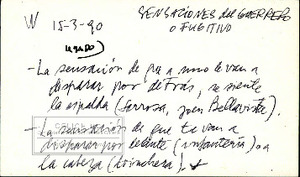 W 15-3-90 SENSACIONES del GUERRERO
O FUGITIVO
- La sensación de que a uno le van a
disparar por detrás, se siente
la espalda (, Bellavista).
- La sensación de que te van a
disparar por delante (infantería) o a
la cabeza (trinchera).